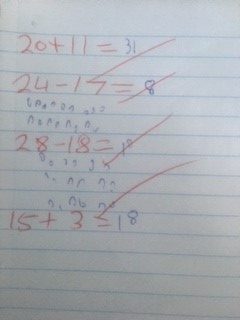 20+11=31
24-17=8
28-18=1
15+3=18